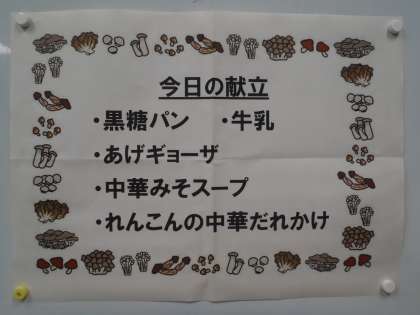 今日の献立
・黒糖パン ・牛乳
・あげギョーザ
・中華みそスープ
・れんこんの中華だれかけ